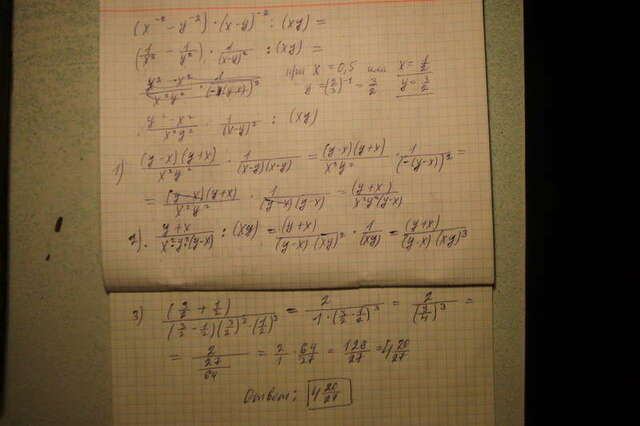 (x⁻² - y⁻²) · (x-y)⁻² : (xy) =
(1/x² - 1/y²) · 1/(x-y)² : (xy) =
при x = 0,5 или x = 1/2
y = (2/3)⁻¹ = 3/2 y = 3/2
y² - x²/x²y² · 1/(-(y-x))²
y² - x²/x²y² · 1/(x-y)² : (xy)
1) (y-x)(y+x)/x²y² · 1/(x-y)(x-y) = (y-x)(y+x)/x²y² · 1/(-(y-x))² =
= (y-x)(y+x)/x²y² · 1/(y-x)(y-x) = (y+x)/x²y²(y-x)
2). y+x/x²y²(y-x) : (xy) = (y+x)/(y-x)(xy)² · 1/(xy) = (y+x)/(y-x)(xy)³
3) (3/2 + 1/2)/(3/2 - 1/2)(3/2)³·(1/2)³ = 2/1·(3/2·1/2)³ = 2/(3/4)³ =
= 2/27/64 = 2/1 · 64/27 = 128/27 = 4 20/27
Ответ: 4 20/27